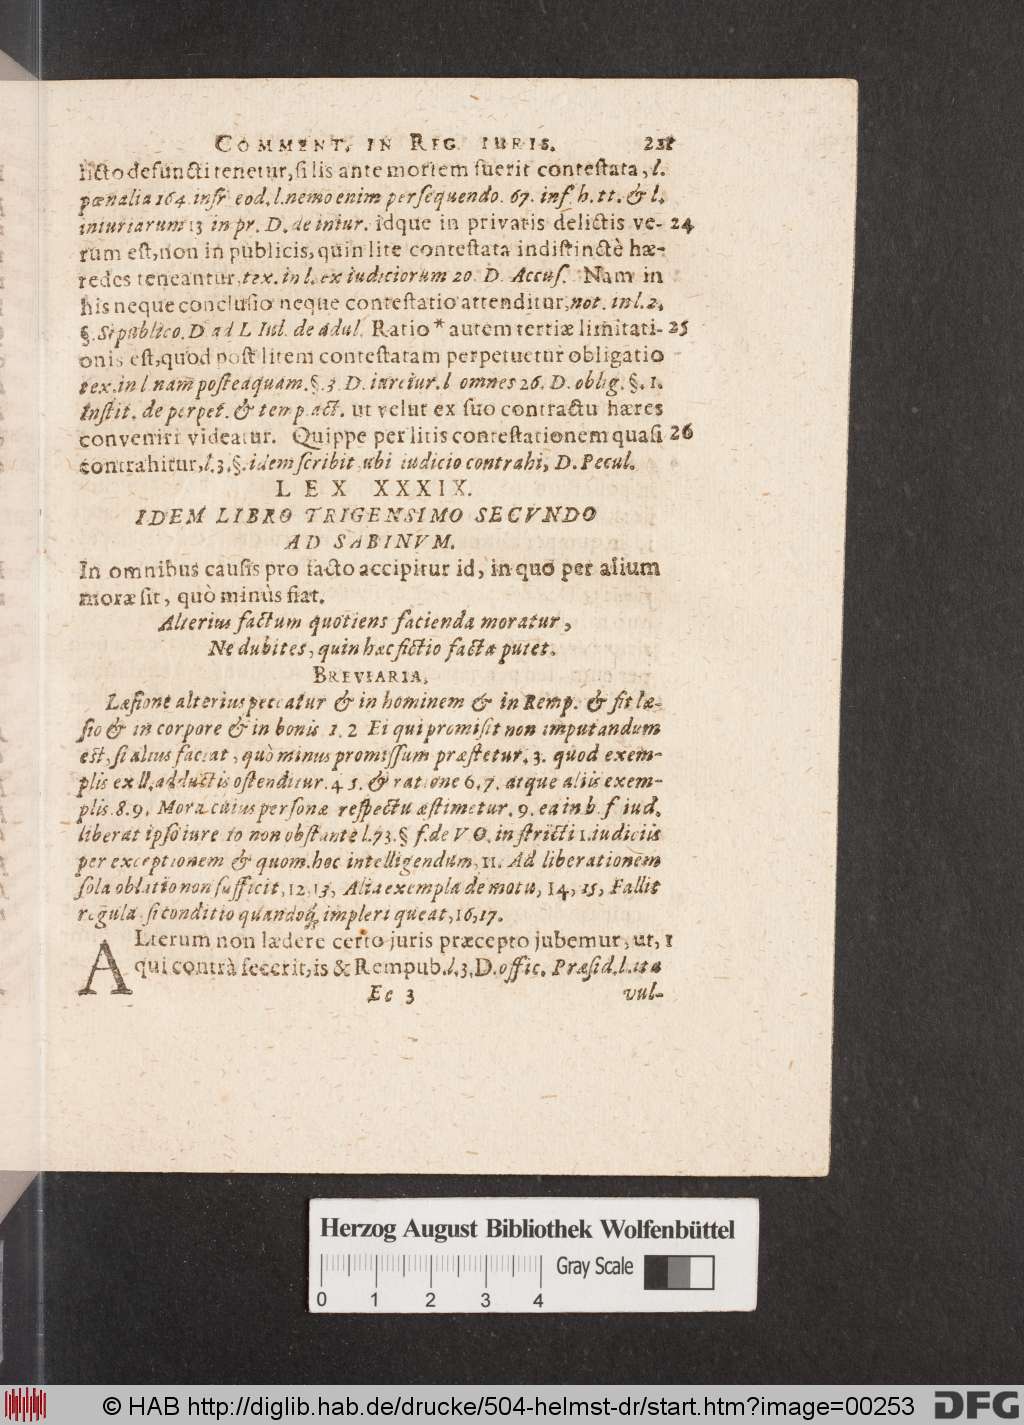 COMMENT. IN REG. IURIS. 231
licto defuncti tenetur, si lis ante mortem fuerit contestata, l.
pœnalia 164. infr eod. l. nemo enim persequendo. 67. inf. h. tt. & l.
iniuriarum 13 in pr. D. de iniur. idque in privatis delictis ve- 24
rum est, non in publicis, quin lite contestata indistinctè hæ-
redes teneantur, tex. in l. ex iudiciorum 20. D. Accus. Nam in
his neque conclusio neque contestatio attenditur, not. in l. 2.
§. Si publico. D ad L Iul. de adul. Ratio* autem tertiæ limitati- 25
onis est, quod post litem contestatam perpetuetur obligatio
tex. in l nam posteaquam. §. 3. D. iureiur. l omnes 26. D. oblig. §. 1.
Instit. de perpet. & temp act. ut velut ex suo contractu hæres
conveniri videatur. Quippe per litis contestationem quasi 26
contrahitur, l. 3. §. idem scribit ubi iudicio contrahi, D. Pecul.
LEX XXXIX.
IDEM LIBRO TRIGENSIMO SECVNDO
AD SABINVM.
In omnibus causis pro facto accipitur id, in quo per alium
moræ sit, quò minùs fiat.
Alterius factum quotiens facienda moratur,
Ne dubites, quin hæc fictio facta putet.
BREVIARIA.
Læsione alterius peccatur & in hominem & in Remp. & fit læ-
sio & in corpore & in bonis 1. 2 Ei qui promisit non imputandum
est, si alius faciat, quò minus promissum præstetur. 3. quod exem-
plis ex ll. adductis ostenditur. 4 5. & ratione 6. 7. atque aliis exem-
plis. 8. 9. Mora cuius personæ respectu æstimetur. 9. ea in b. f iud.
liberat ipso iure 10 non obstante l. 73. § f. de V O. in stricti 1. iudiciis
per exceptionem & quom. hoc intelligendum, 11. Ad liberationem
sola oblatio non sufficit, 12, 13, Alia exempla de motu, 14, 15, Fallit
regula si conditio quandoq; impleri queat, 16, 17.
ALterum non lædere certo juris præcepto jubemur, ut, 1
qui contrà fecerit, is & Rempub. l. 3. D. offic. Præsid. l. ita
Ee 3 vul-
Herzog August Bibliothek Wolfenbüttel
Gray Scale
0 1 2 3 4
© HAB http://diglib.hab.de/drucke/504-helmst-dr/start.htm?image=00253
DFG